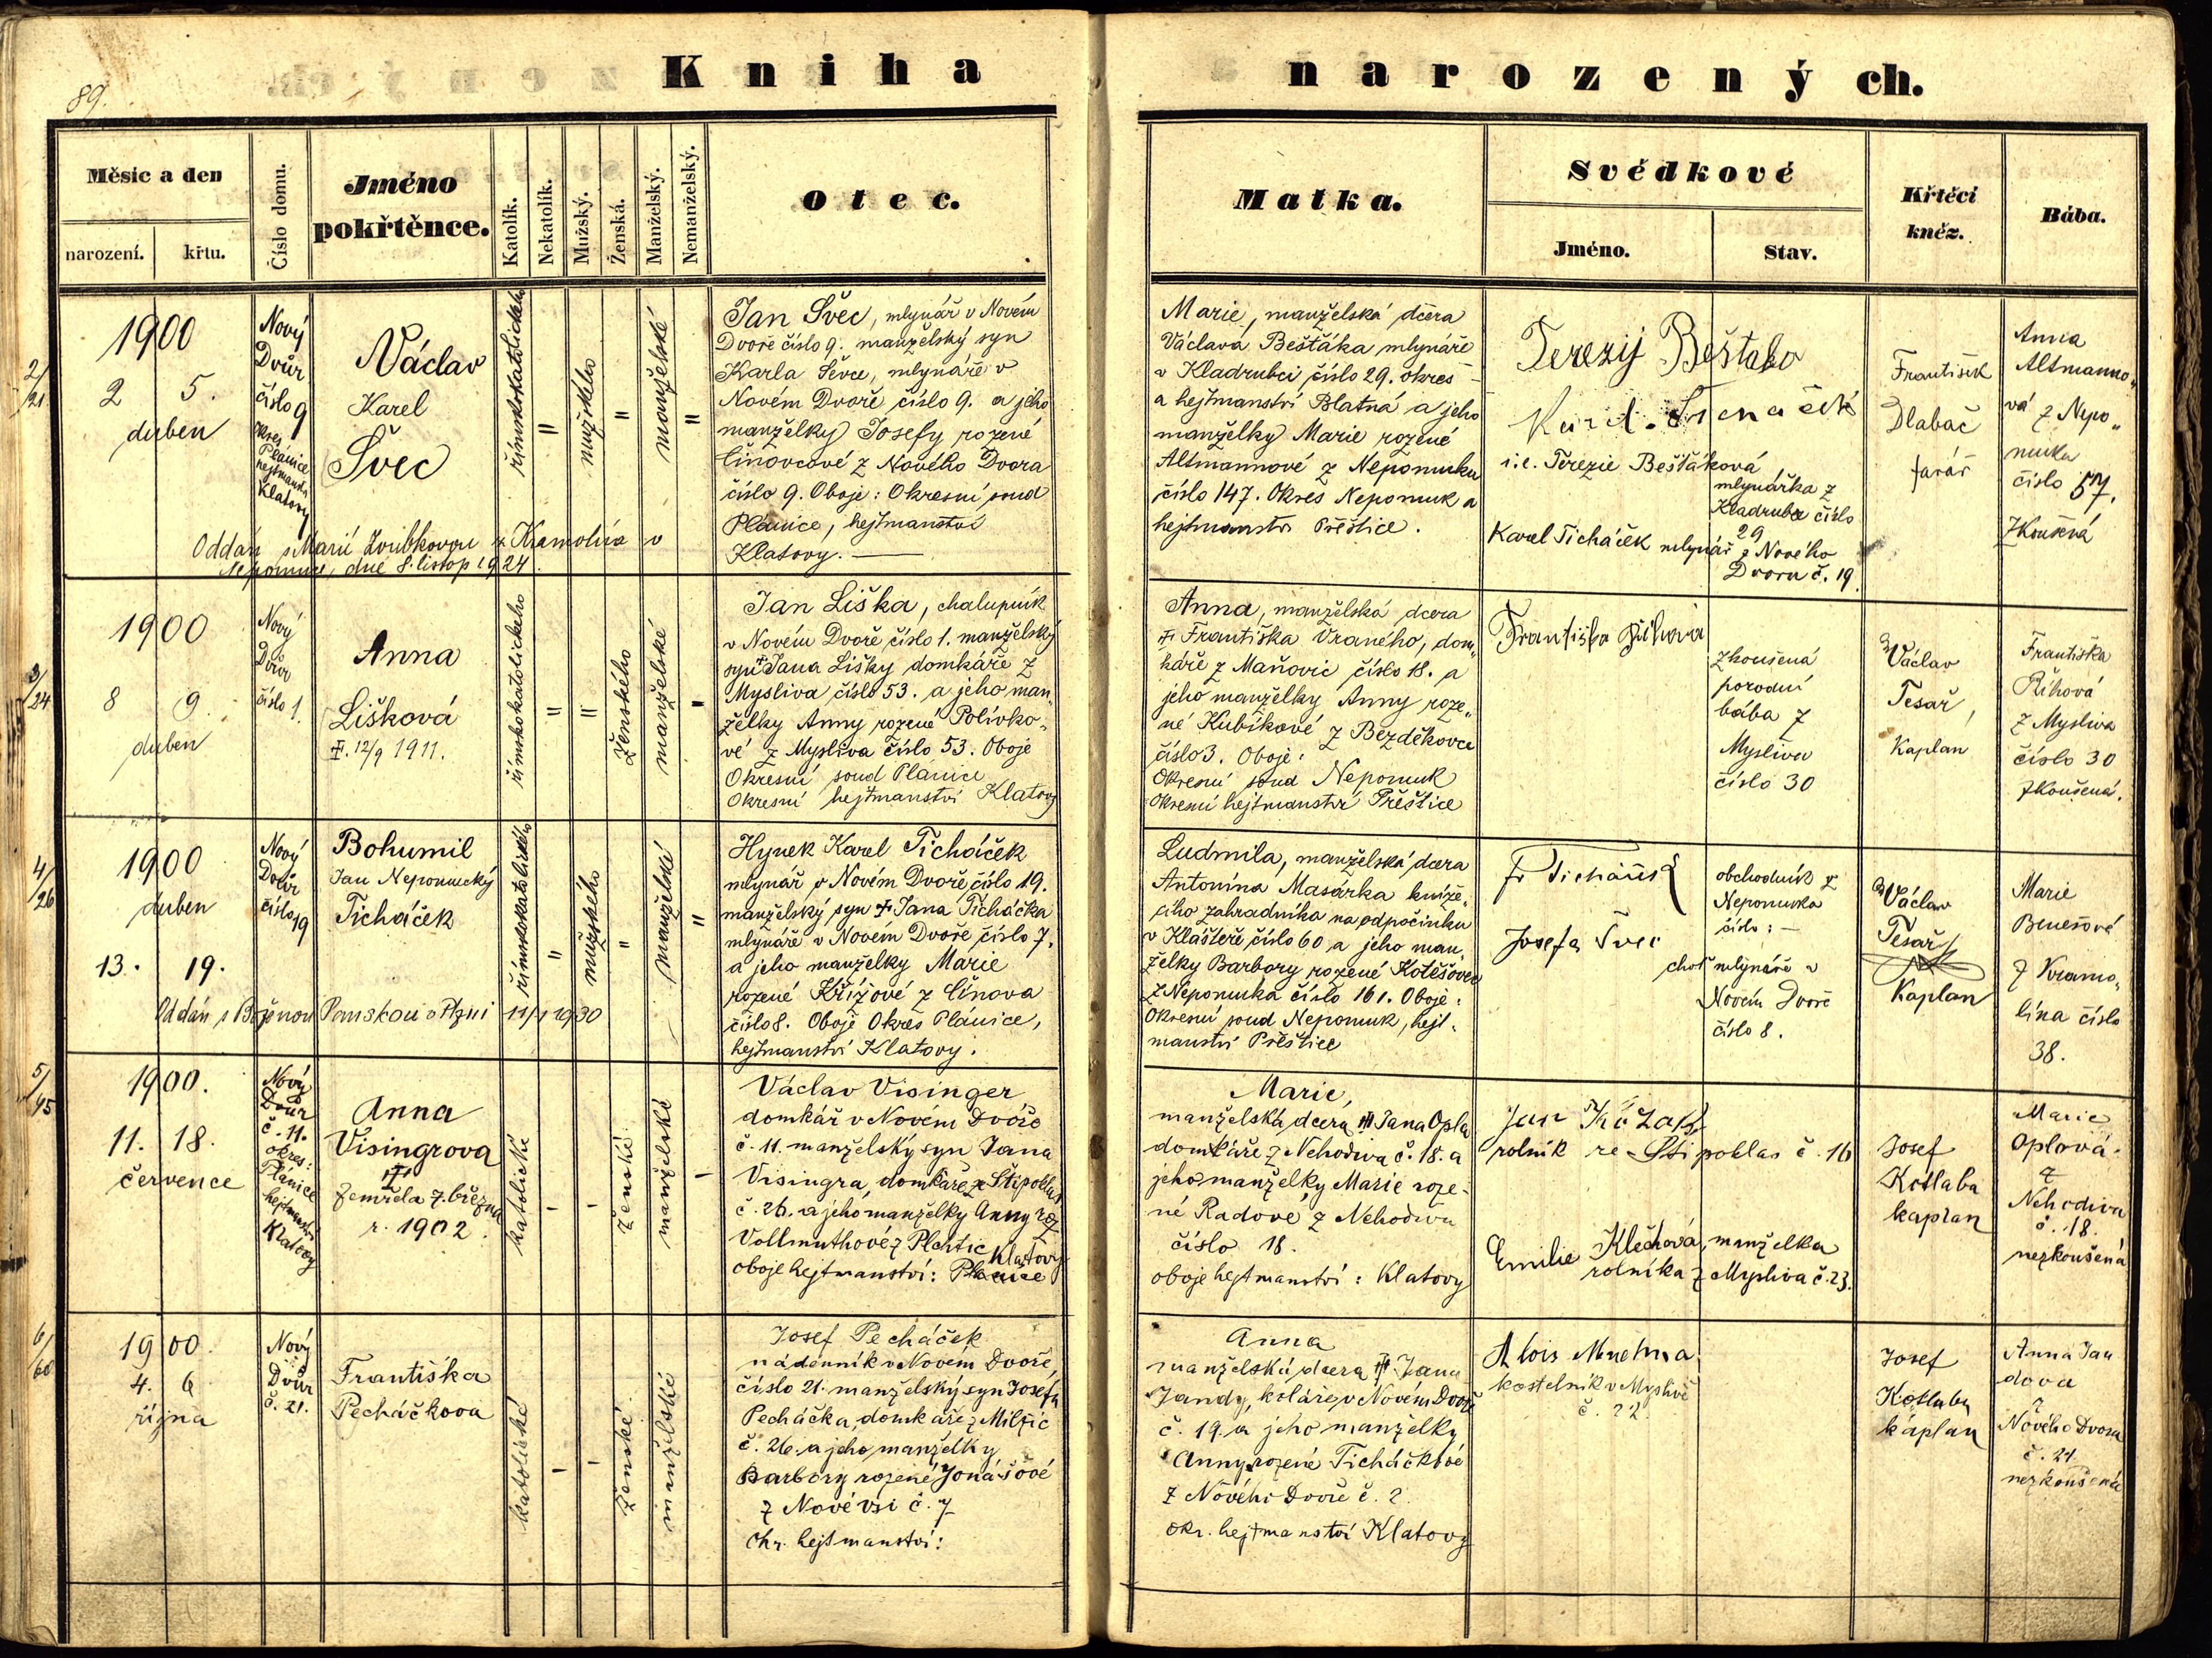 89.
Kniha narozených.
Měsíc a den
narození.
křtu.
Číslo domu.
Jméno
pokřtěnce.
Katolík.
Nekatolík.
Mužský.
Ženská.
Manželský.
Nemanželský.
Otec.
Matka.
Svědkové
Jméno.
Stav.
Křtěcí
kněz.
Bába.
2/21
1900
2 5.
duben
Nový
Dvůr
číslo 9
okres
Plánice
hejtmanství
Klatovy
Václav
Karel
Švec
římskokatolického
"
mužského
"
manželské
"
Jan Švec, mlynář v Novém
Dvoře číslo 9. manželský syn
Karla Ševce, mlynáře v
Novém Dvoře číslo 9. a jeho
manželky Josefy rozené
Čínovcové z Nového Dvora
číslo 9. Oboje: Okresní soud
Plánice, hejtmanství
Klatovy.
Oddán s Marií z Kramolína v
Nepomuce, dne 8. listop 1924.
Marie, manželská dcera
Václava Bešťáka mlynáře
v Kladrubci číslo 29. okres
a hejtmanství Blatná a jeho
manželky Marie rozené
Altmannové z Nepomuku
číslo 147. Okres Nepomuk a
hejtmanství Přeštice.
i.e. Terezie Bešťáková
mlynářka z
Kladrubce číslo
29
Karel Ticháček mlynář z Nového
Dvoru č. 19
František
Dlabač
farář
Anna
Altmanno„
vá z Nepo„
muku
číslo 57.
Zkoušená
3/24
1900
8 9.
duben
Nový
Dvůr
číslo 1.
Anna
Lišková
✝. 12/9 1911.
římskokatolického
"
"
ženského
manželské
"
Jan Liška, chalupník
v Novém Dvoře číslo 1. manželský
syn ✝ Jana Lišky domkáře z
Mysliva číslo 53. a jeho man„
želky Anny rozené Polívko„
vé z Mysliva číslo 53. Oboje
Okresní soud Plánice
Okresní hejtmanství Klatovy
Anna, manželská dcera
✝ Františka Vraného, dom„
káře z Maňovic číslo 18. a
jeho manželky Anny roze„
né Kubíkové z Bezděkovce
číslo 3. Oboje:
Okresní soud Nepomuk
Okresní hejtmanství Přeštice
Františka Říhová
zkoušená
porodní
bába z
Mysliva
číslo 30
Václav
Tesař,
Kaplan
Františka
Říhová
z Mysliva
číslo 30
zkoušená.
4/26
1900
duben
13. 19.
Nový
Dvůr
číslo 19
Bohumil
Jan Nepomucký
Ticháček
římskokatolického
"
mužského
"
manželské
"
Oddán s Boženou Panskou v Plzni 11/1 1930
Hynek Karel Ticháček
mlynář v Novém Dvoře číslo 19.
manželský syn ✝ Jana Ticháčka
mlynáře v Novém Dvoře číslo 7.
a jeho manželky Marie
rozené Křížové z Čínova
číslo 8. Oboje Okres Plánice,
hejtmanství Klatovy.
Ludmila, manželská dcera
Antonína Masárka kníže„
cího zahradníka na odpočinku
v Klášteře číslo 60 a jeho man„
želky Barbory rozené Kotěšovec
z Nepomuka číslo 161. Oboje:
Okresní soud Nepomuk, hejt„
manství Přeštice
Fr Ticháček
obchodník z
Nepomuka
číslo: —
Josefa Švec
choť mlynáře v
Novém Dvoře
číslo 8.
Václav
Tesař
Kaplan
Marie
Benešové
z Kramo„
lína číslo
38.
5/45
1900.
11. 18.
července
Nový
Dvůr
č. 11.
okres:
Plánice
hejtmanství
Klatovy
Anna
Visingrova
✝
Zemřela 7. března
r. 1902.
katolické
-
-
ženské
manželské
-
Václav Visinger
domkář v Novém Dvoře
č. 11. manželský syn Jana
Visingra, domkáře ze Štipoklas
č. 26. a jeho manželky Anny roz
Vollmuthové z Plchtic
Klatovy
oboje hejtmanství: Plánice
Marie,
manželská dcera ✝ Jana Opla
domkáře z Nehodiva č. 18. a
jeho manželky Marie roze-
né Radové z Nehodiva
číslo 18.
oboje hejtmanství: Klatovy
Jan
rolník ze Štipoklas č. 16
Emilie Klečková, manželka
rolníka z Mysliva č. 23.
Josef
Kotlaba
kaplan
Marie
Oplová
z
Nehodiva
č. 18.
nezkoušená
6/60
1900.
4. 6
října
Nový
Dvůr
č. 21.
Františka
Pecháčkova
katolické
-
-
ženské
manželské
Josef Pecháček
nádenník v Novém Dvoře,
číslo 21. manželský syn Josefa
Pecháčka, domkáře z Milčic
č. 26. a jeho manželky
Barbory rozené Jonášové
z Nové vsi č. 7
Okr. hejtmanství:
Anna
manželská dcera ✝ Jana
Jandy, koláře v Novém Dvoře
č. 19. a jeho manželky
Anny rozené Ticháčkové
z Nového Dvoře č. 2.
okr. hejtmanství Klatovy
Alois
kostelník v Myslivě
č. 22.
Josef
Kotlaba
kaplan
Anna Jan
dova
z
Nového Dvora
č. 21.
nezkoušená